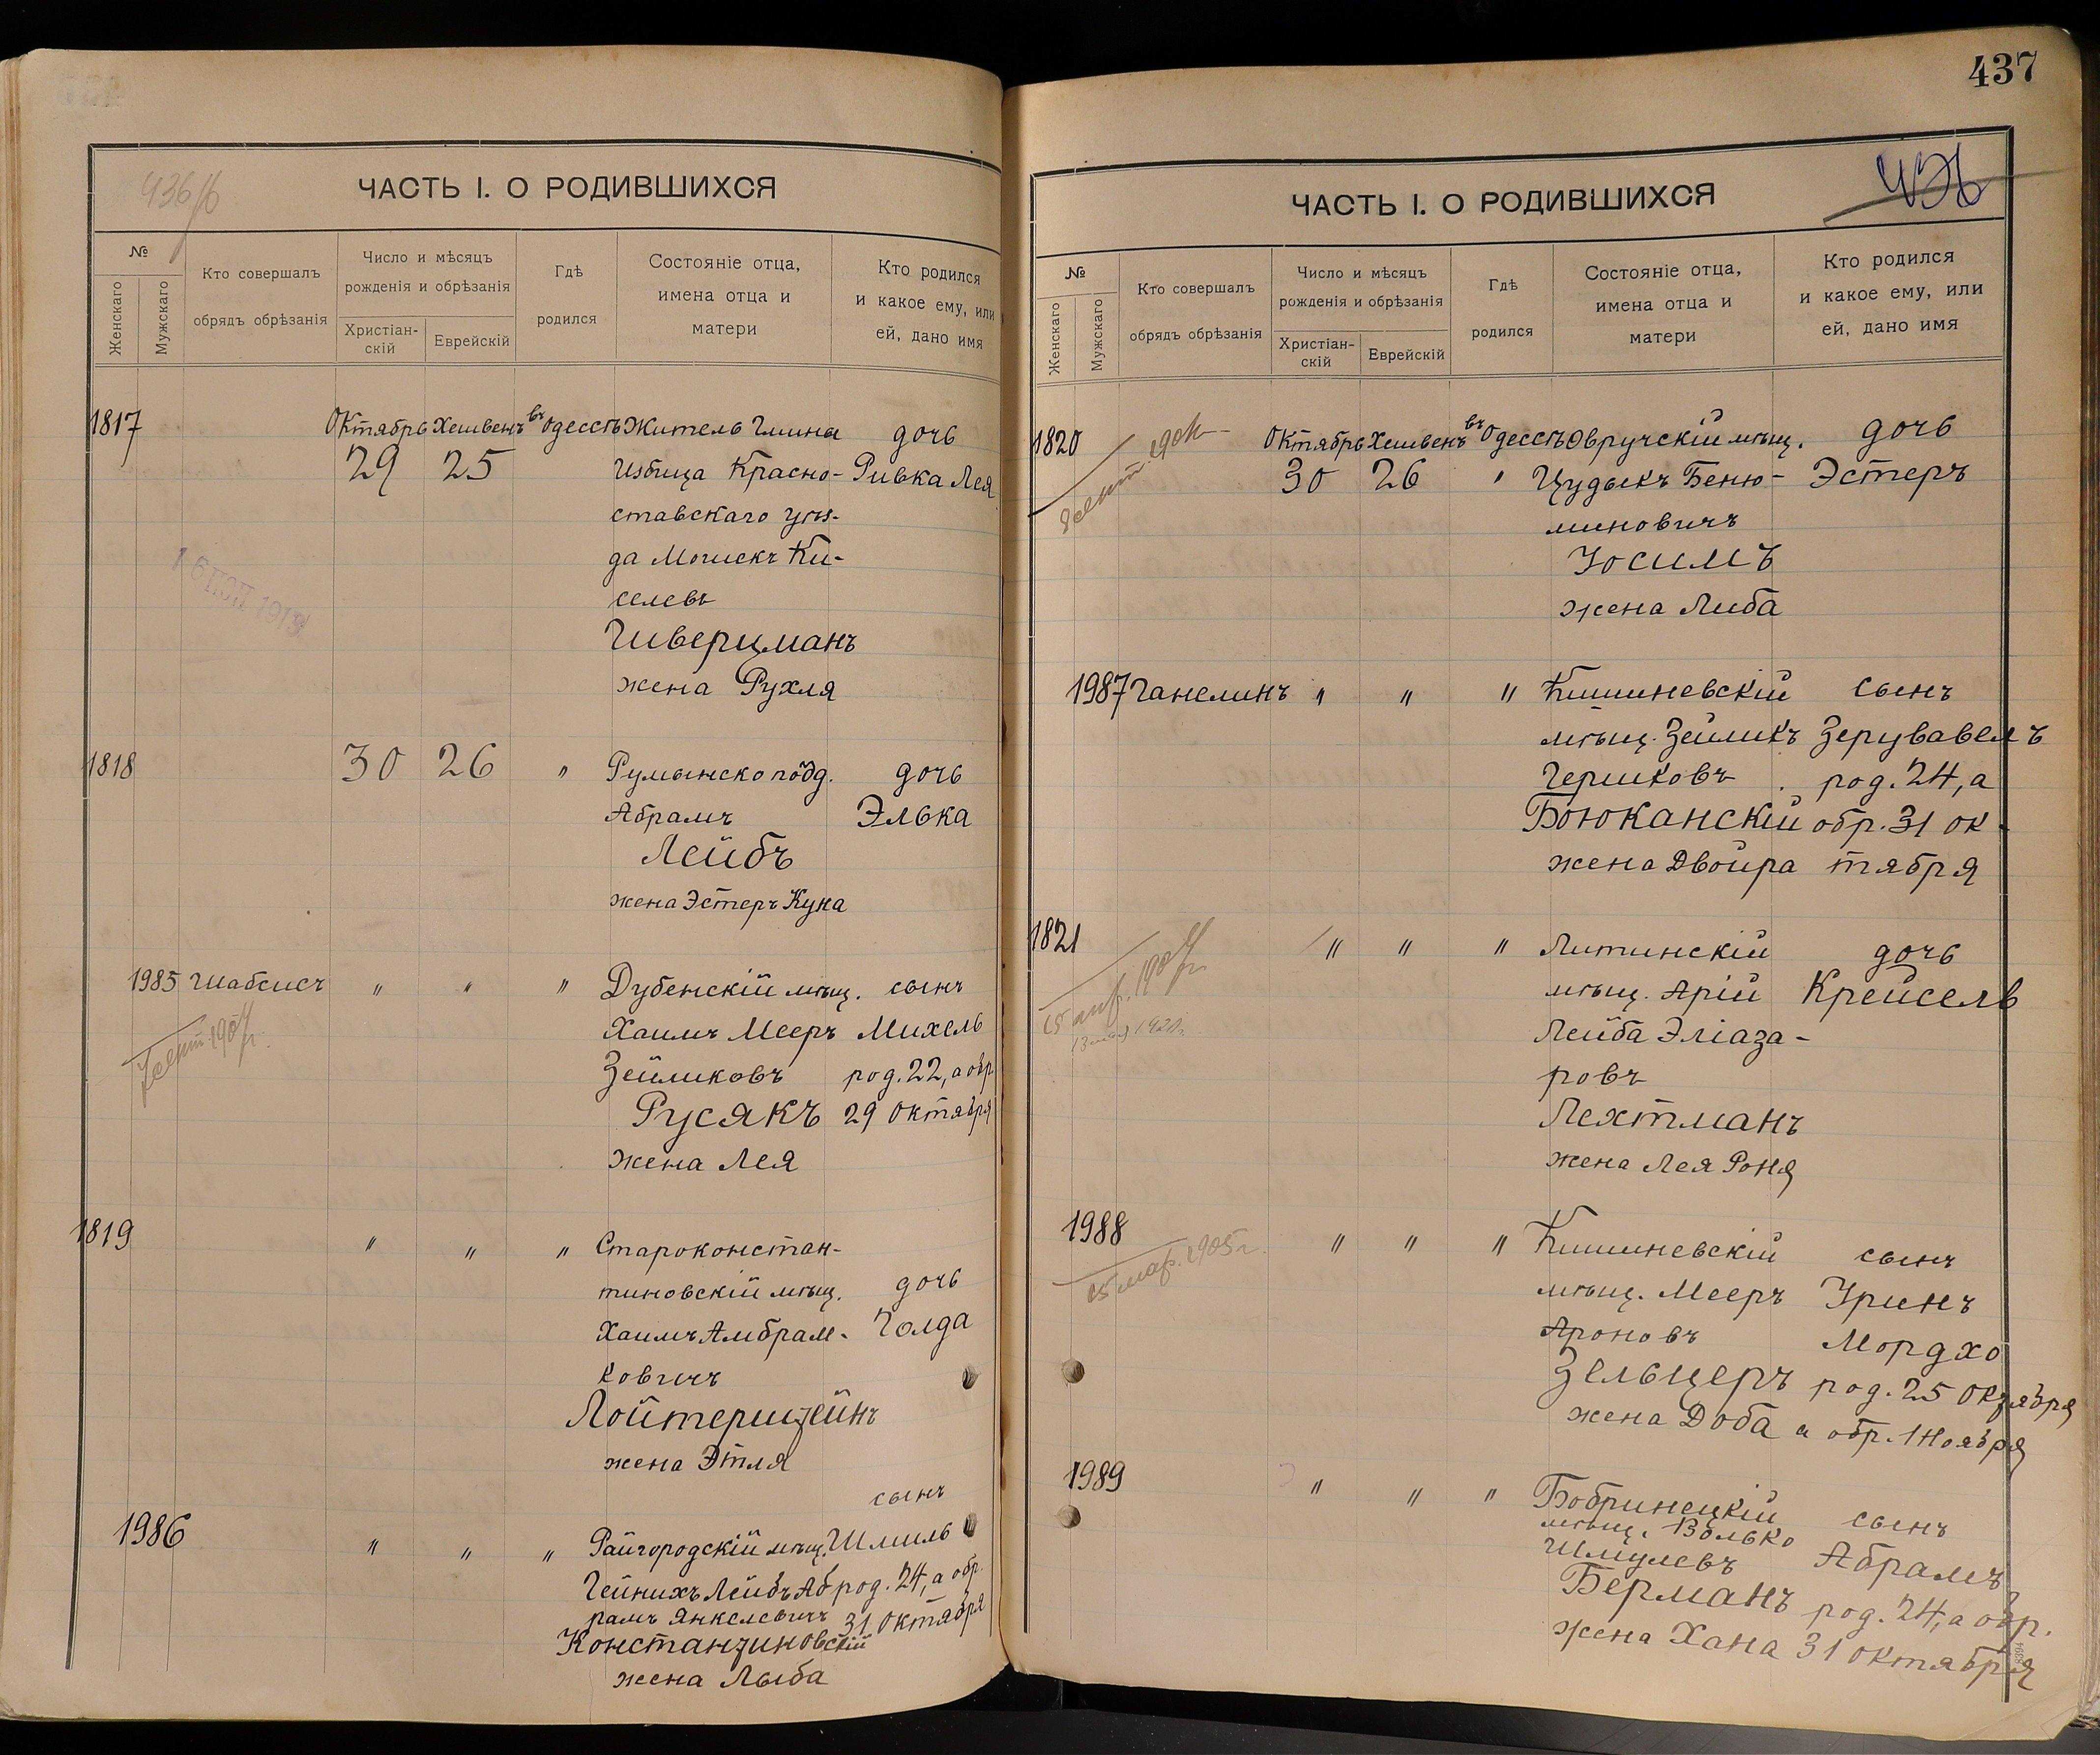 436/б
ЧАСТЬ I. О РОДИВШИХСЯ
№
Женскаго
Мужскаго
Кто совершалъ
обрядъ обрѣзанія
Число и мѣсяцъ
рожденія и обрѣзанія
Христіан-
скій
Еврейскій
Гдѣ
родился
Состояніе отца,
имена отца и
матери
Кто родился
и какое ему, или
ей, дано имя
1817 Октябрь Хешвенъ въ Одессѣ Житель Гмины дочь
29 25 Избица Красно- Ривка Лея
ставскаго уѣз-
да Мошекъ Ки-
селевъ
Шверцманъ
жена Рухля
1818 30 26 " Румынско подд. дочь
Абрамъ Элька
Лейбъ
жена Эстеръ Куна
1985 Шабсисъ " " " Дубенскій мѣщ. сынъ
Хаимъ Мееръ Михель
Зейликовъ род. 22, а обр
Русякъ 29 Октября
жена Лея
1819 " " " Староконстан-
тиновскій мѣщ. дочь
Хаимъ Амбрам- Голда
ковичъ
Лойтерштейнъ
жена Этля
сынъ
1986 " " " Райгородскій мѣщ. Шмиль
Гейнихъ Лейбъ Аб род. 24, а обр.
рамъ Янкелевичъ 31 октября
Константиновскій
жена Лыба
437
ЧАСТЬ I. О РОДИВШИХСЯ
436
№
Женскаго
Мужскаго
Кто совершалъ
обрядъ обрѣзанія
Число и мѣсяцъ
рожденія и обрѣзанія
Христіан-
скій
Еврейскій
Гдѣ
родился
Состояніе отца,
имена отца и
матери
Кто родился
и какое ему, или
ей, дано имя
1820 Октябрь Хешвенъ въ Одессѣ Овручскій мѣщ. дочь
30 26 " Цудыкъ Беню- Эстеръ
миновичъ
Іосимъ
жена Либа
1987 Ганелинъ " " " Кишиневскій сынъ
мѣщ. Зейликъ Зерувавелъ
Гершковъ род. 24, а
Боюканскій обр. 31 ок-
жена Двойра тября
1821 " " " Литинскій дочь
мѣщ. Арій Крейсель
Лейба Эліаза-
ровъ
Лехтманъ
жена Лея Роня
1988 " " " Кишиневскій сынъ
15 мар. 1905 г.
мѣщ. Мееръ Уринъ
Ароновъ Мордхо
Зельцеръ род. 25 Октября
жена Доба а обр. 1 Ноября
1989 " " " Бобринецкій сынъ
мѣщ. Волько
Шмулевъ Абрамъ
Берманъ род. 24, а обр.
жена Хана 31 октября